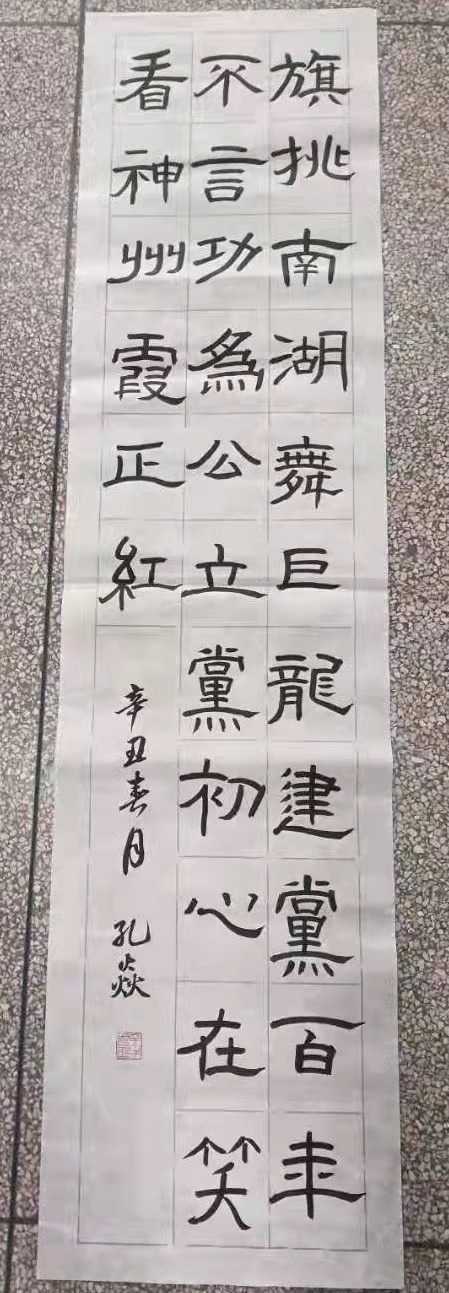 旗挑南湖舞巨龍建黨百年
不言功為公立黨初心在笑
看神州霞正紅
辛丑春月 孔焱